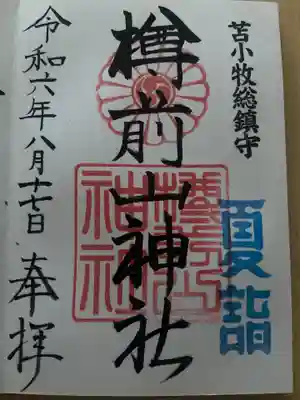 苫小牧総鎮守
夏詣
樽前山神社
樽前山神社
令和六年八月十七日
奉拝